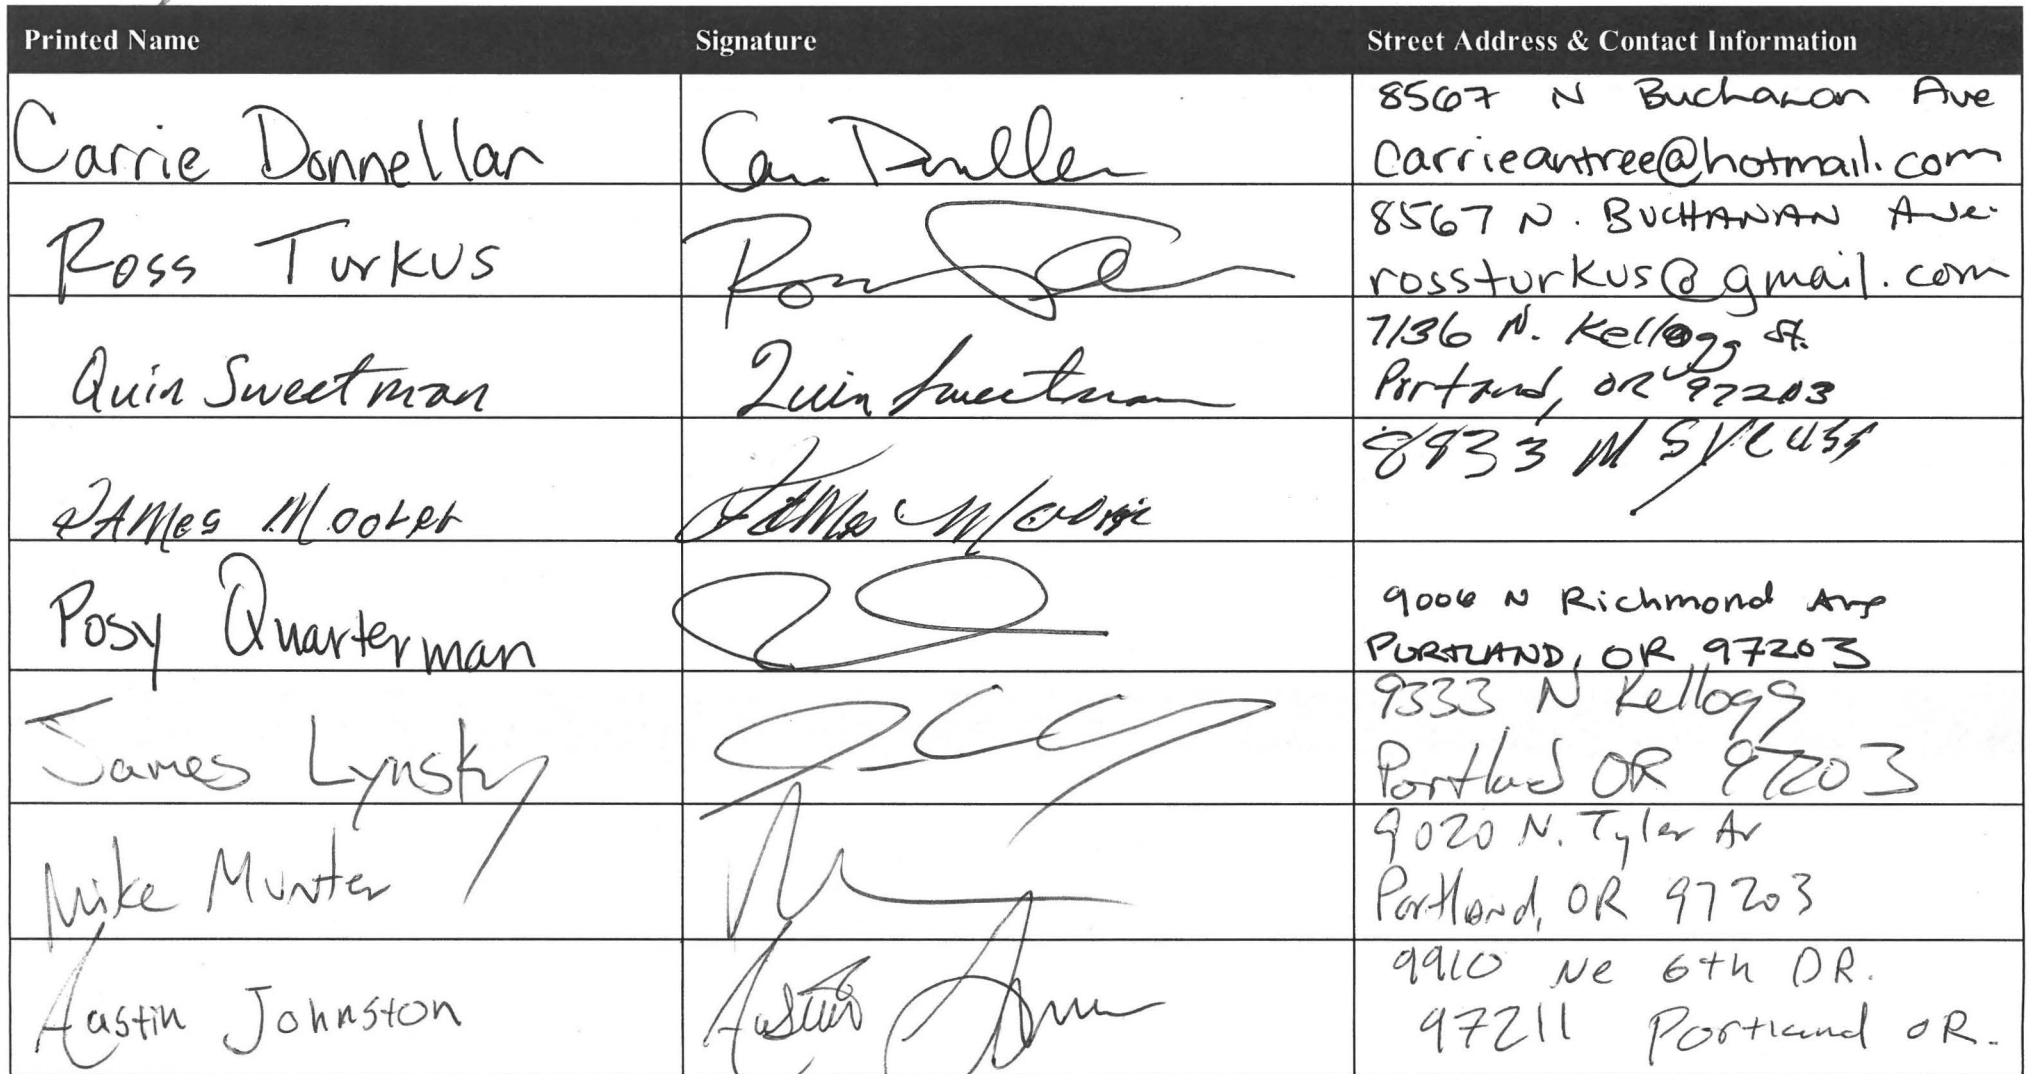 Printed Name Signature Street Address & Contact Information
Carrie Donnellan
8567 N Buchanan Ave
Carrieantree@hotmail.com
Ross Turkus
8567 N. BUCHANAN Ave.
rossturkus@gmail.com
Quin Sweetman Quin Sweetman
7136 N. Kellogg St.
Portland, OR 97203
JAMes
James
N
Posy Quarterman
9006 N Richmond Ave
PORTLAND, OR 97203
James Lynsky
9333 N Kellogg
Portland OR 97203
Mike Munter
9020 N. Tyler Av
Portland, OR 97203
Austin Johnston Austin
9910 Ne 6th DR.
97211 Portland OR.